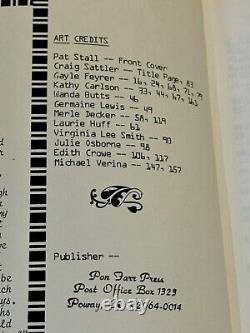 ART CREDITS
Pat Stall -- Front Cover
Craig Sattler -- Title Page, 83
Gayle Feyrer -- 16, 24, 68, 71, 79
Kathy Carlson -- 33, 44, 67, 163
Wanda Butts -- 46
Germaine Lewis -- 49
Merle Decker -- 58, 119
Laurie Huff -- 61
Virginia Lee Smith -- 90
Julie Osborne -- 98
Edith Crowe -- 106, 117
Michael Verina -- 147, 157
Publisher --
Pon Farr Press
Post Office Box 1323
Poway, 2064-0014
gh
y
ys.
hs
ld